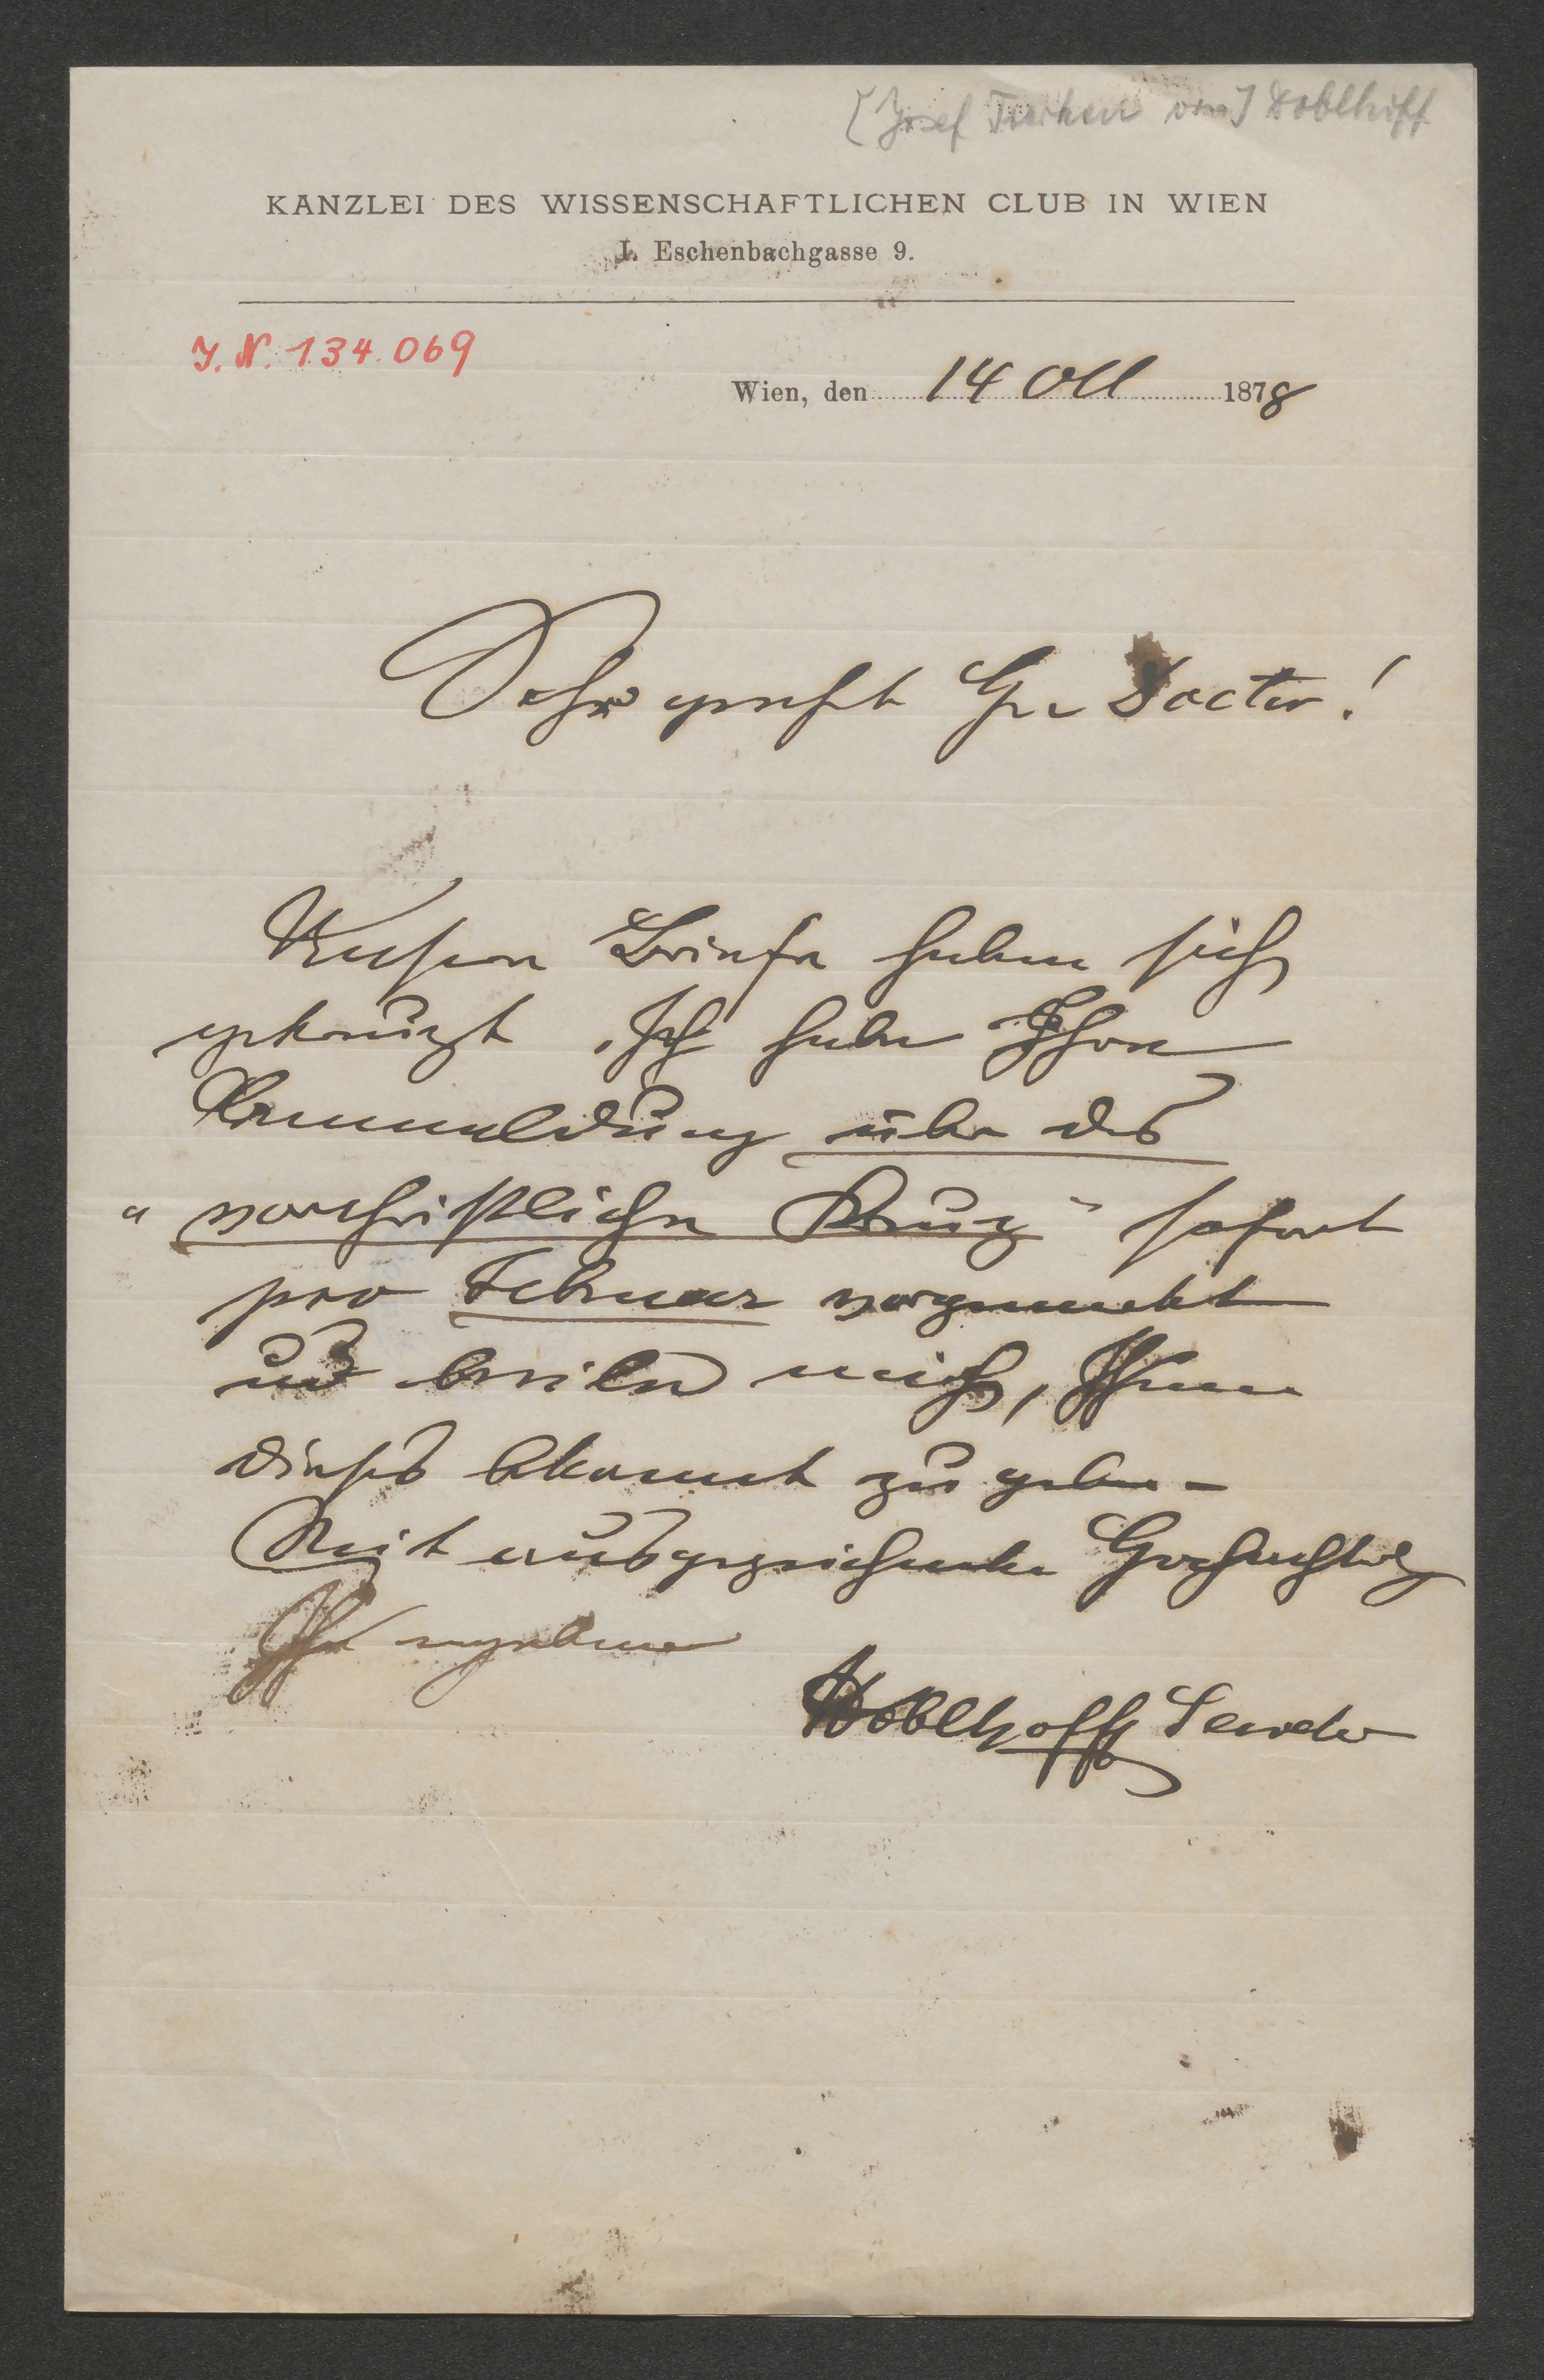 [Josef Freiherr von] Doblhoff
KANZLEI DES WISSENSCHAFTLICHEN CLUB IN WIEN
I. Eschenbachgasse 9.
J. N. 134.069
Wien, den 14 Oct 1878
Sehr geehrt Hr Doctor!
Unsere Briefe haben sich
gekreuzt. Ich habe Ihre
Anmeldung über das
"vorchristliche Kreuz" sofort
pro Februar vorgemerkt
und beeile mich, Ihnen
dieses bekannt zu geben –
Mit ausgezeichneter Hochachtung
Ihr ergebener
Doblhoff